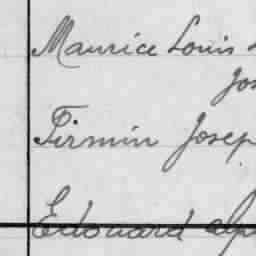 Maurice Louis
Jos
Firmin Josep
Edouard Alp